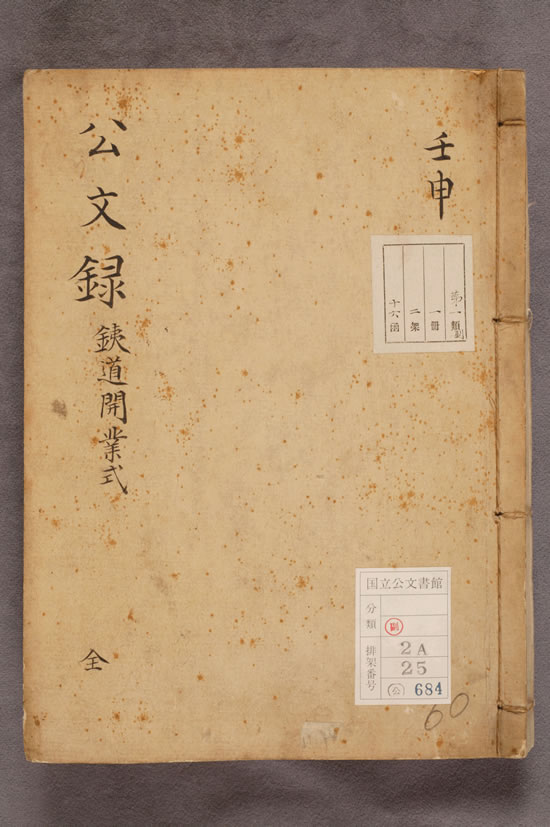 壬申
公文録
鉄道開業式
全
第一類
一冊
二架
十六函
国立公文書館
分類
副
排架番号
2A
25
公 684
60